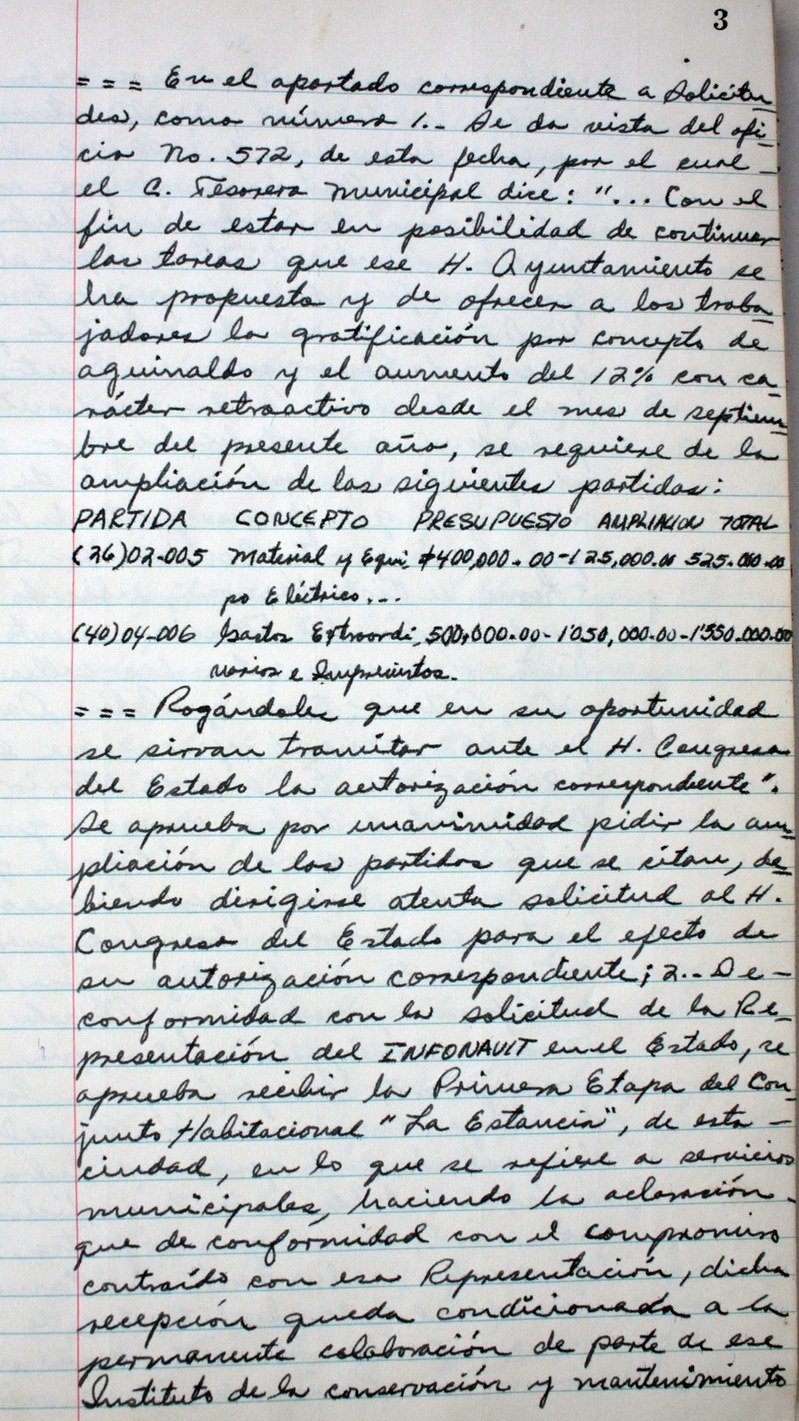 3
= = = En el apartado correspondiente a Solicitu
des, como número 1.- Se da vista del ofi-
cio No. 572, de esta fecha, por el cual -
el C. Tesorero Municipal dice: "... Con el
fin de estar en posibilidad de continuar
las tareas que ese H. Ayuntamiento se
ha propuesto y de ofrecer a los traba
jadores la gratificación por concepto de
aguinaldo y el aumento del 12% con ca
rácter retroactivo desde el mes de septiem
bre del presente año, se requiere de la
ampliación de las siguientes partidas:
PARTIDA CONCEPTO PRESUPUESTO AMPLIACION TOTAL
(26)02-005 Material y Equi, $400,000.00-125,000.00 525.000.00
po Eléctrico...
(40)04-006 Gastos Extraordi, 500,000.00-1'050,000.00-1'550.000.00
narios e Imprevistos.
= = = Rogándoles que en su oportunidad
se sirvan tramitar ante el H. Congreso
del Estado la autorización correspondiente".
Se aprueba por unanimidad pidir la am
pliación de las partidas que se citan, de
biendo dirigirse atenta solicitud al H.
Congreso del Estado para el efecto de
su autorización correspondiente; 2.- De -
conformidad con la solicitud de la Re-
presentación del INFONAVIT en el Estado, se
aprueba recibir la Primera Etapa del Con-
junto Habitacional "La Estancia", de esta -
ciudad, en lo que se refiere a servicios
municipales, haciendo la aclaración -
que de conformidad con el compromiso
contraído con esa Representación, dicha
recepción queda condicionada a la
permanente colaboración de parte de ese
Instituto de la conservación y mantenimiento